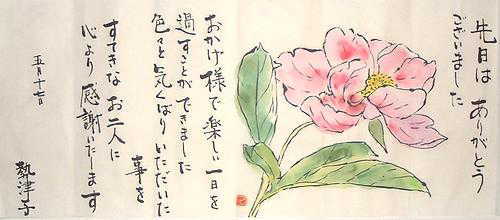 先日は ありがとう
ございました
おかげ様で楽しい一日を
過すことができました
色々と気くばりいただいた
事を
すてきな お二人に
心より 感謝いたします
五月十七日
勢津子